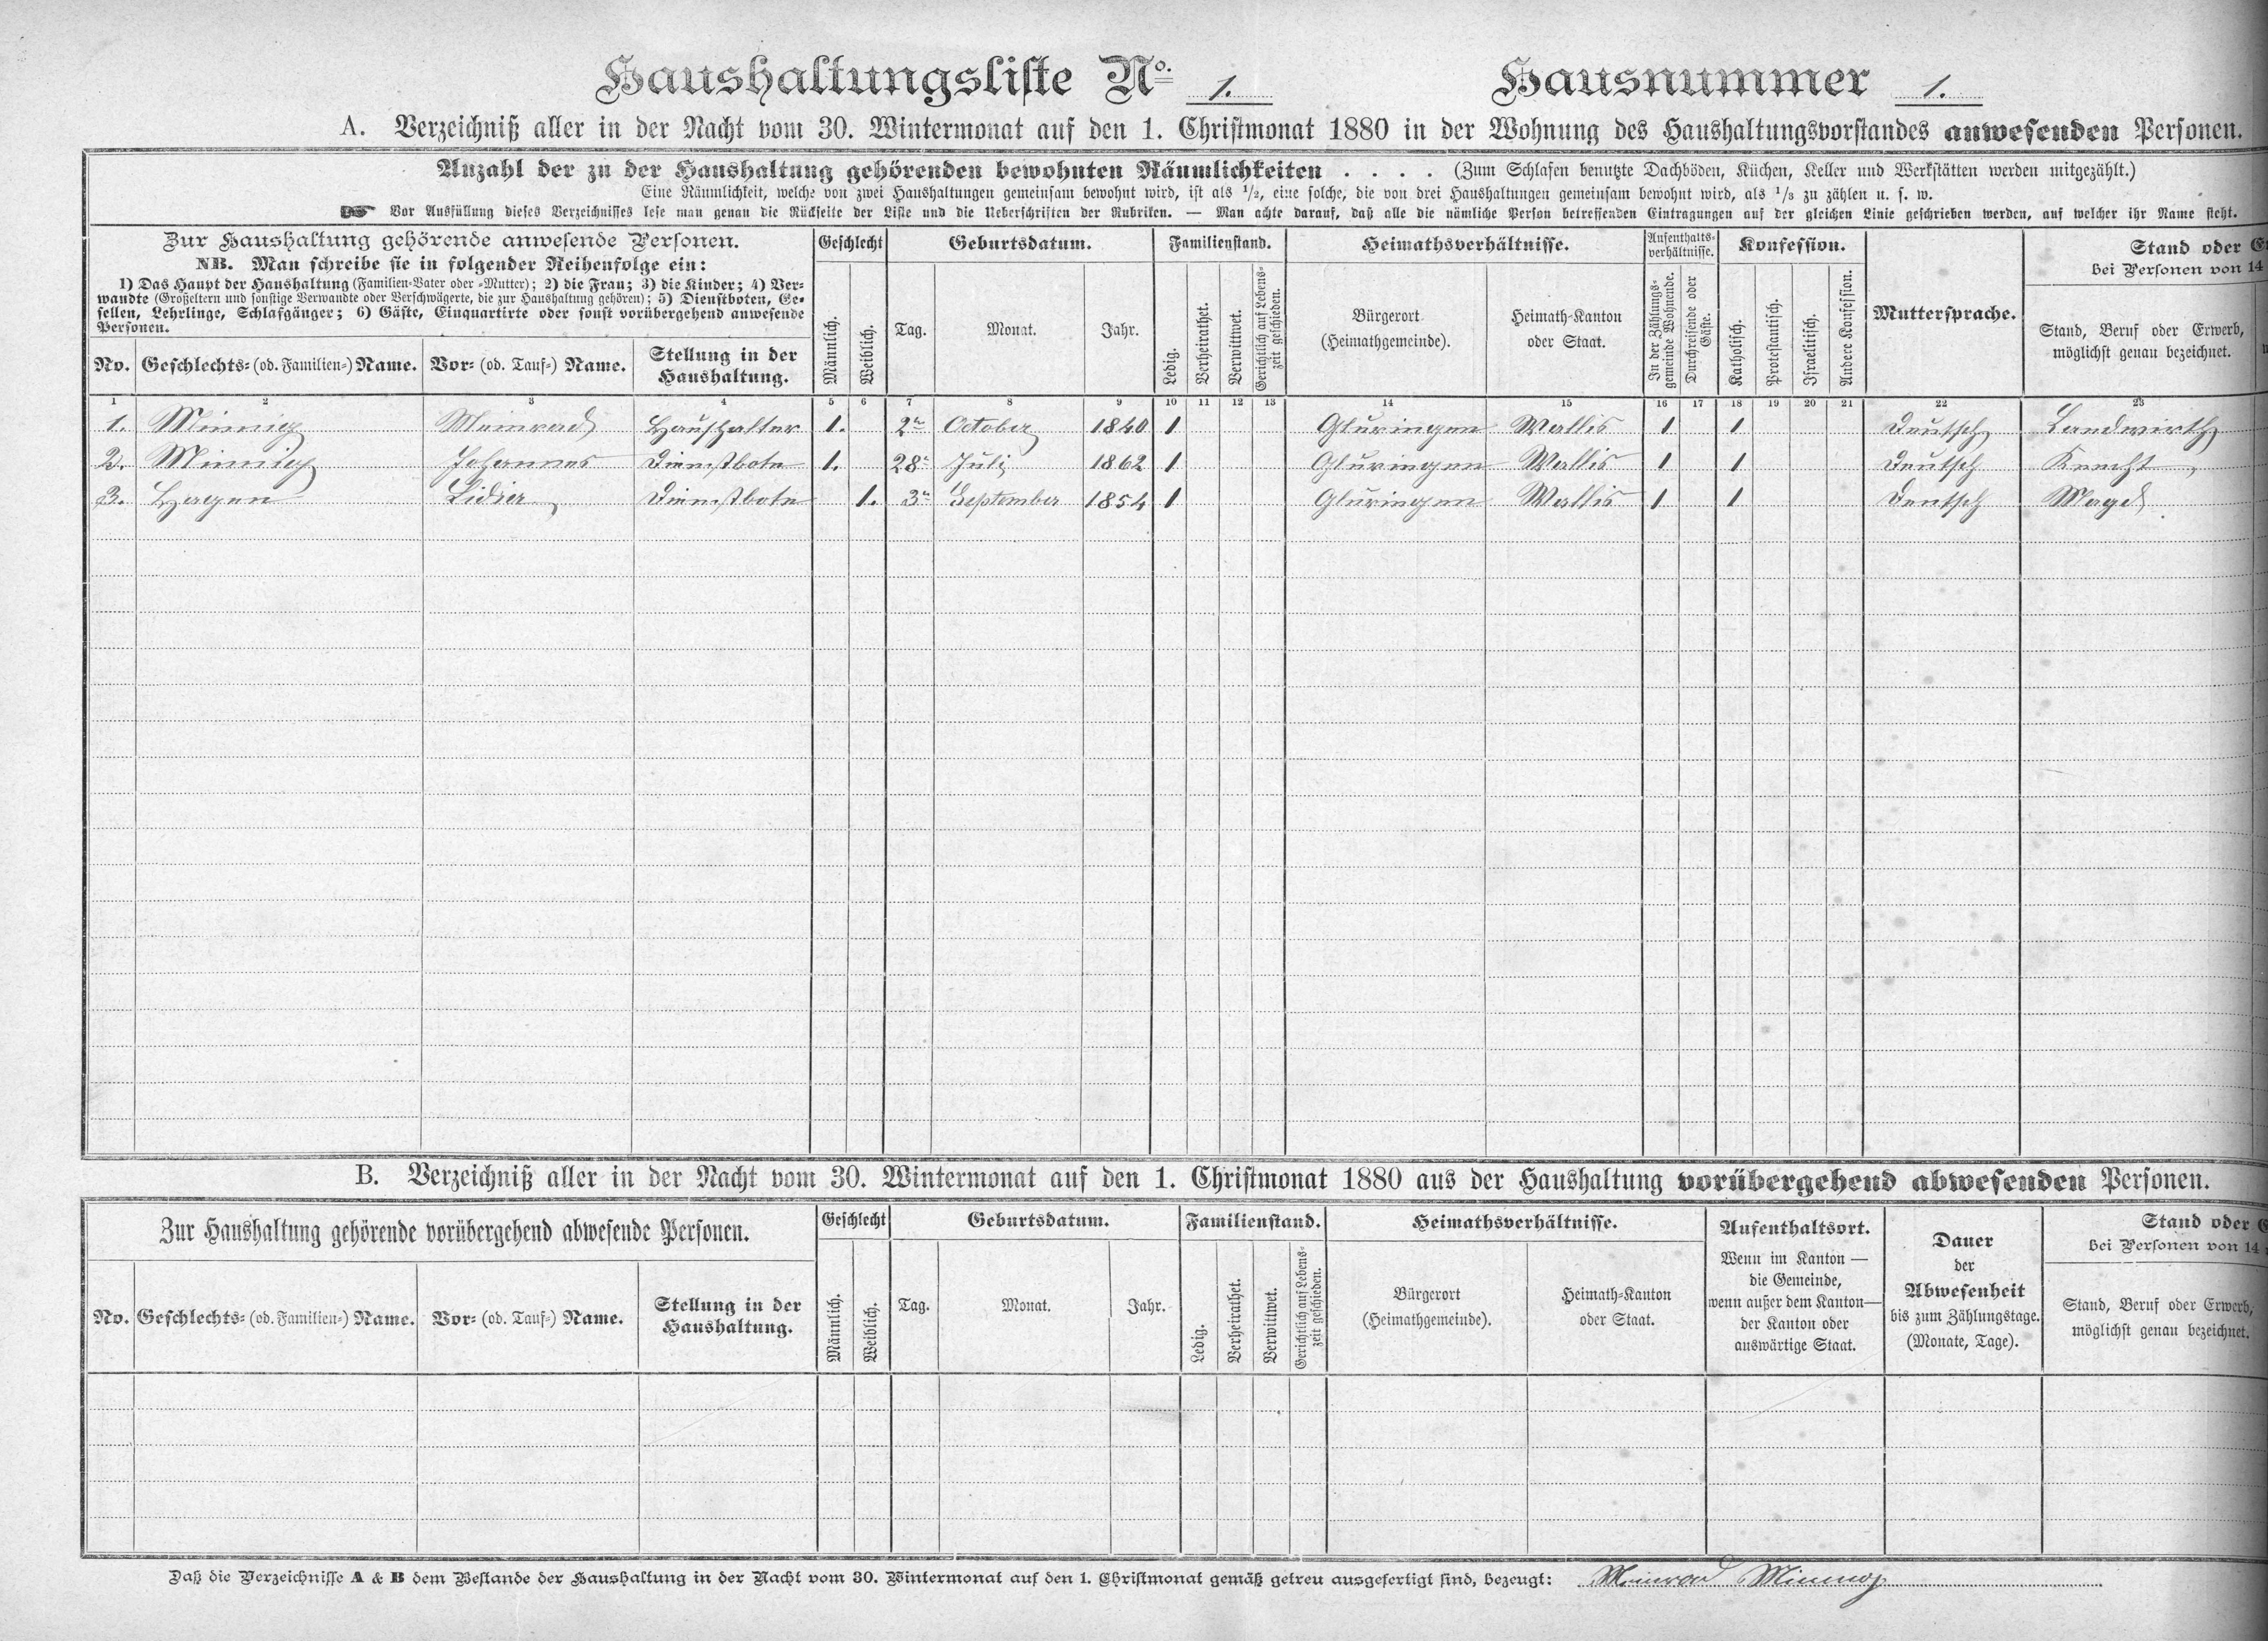 Haushaltungsliste No. 1. Hausnummer 1.
A. Verzeichniß aller in der Nacht vom 30. Wintermonat auf den 1. Christmonat 1880 in der Wohnung des Haushaltungsvorstandes anwesenden Personen.
Anzahl der zu der Haushaltung gehörenden bewohnten Räumlichkeiten . . . . (Zum Schlafen benutzte Dachböden, Küchen, Keller und Werkstätten werden mitgezählt.)
Eine Räumlichkeit, welche von zwei Haushaltungen gemeinsam bewohnt wird, ist als 1/2, eine solche, die von drei Haushaltungen gemeinsam bewohnt wird, als 1/3 zu zählen u. s. w.
Vor Ausfüllung dieses Verzeichnisses lese man genau die Rückseite der Liste und die Ueberschriften der Rubriken. — Man achte darauf, daß alle die nämliche Person betreffenden Eintragungen auf der gleichen Linie geschrieben werden, auf welcher ihr Name steht.
Zur Haushaltung gehörende anwesende Personen.
NB. Man schreibe sie in folgender Reihenfolge ein:
1) Das Haupt der Haushaltung (Familien-Vater oder -Mutter); 2) die Frau; 3) die Kinder; 4) Ver-
wandte (Großeltern und sonstige Verwandte oder Verschwägerte, die zur Haushaltung gehören); 5) Dienstboten, Ge-
sellen, Lehrlinge, Schlafgänger; 6) Gäste, Einquartirte oder sonst vorübergehend anwesende
Personen.
No. Geschlechts- (od. Familien-) Name. Vor- (od. Tauf-) Name. Stellung in der
Haushaltung.
Geschlecht
Männlich. Weiblich.
Geburtsdatum.
Tag. Monat. Jahr.
Familienstand.
Ledig. Verheirathet. Verwittwet. Gerichtlich auf Lebens-
zeit geschieden.
Heimathsverhältnisse.
Bürgerort
(Heimathgemeinde).
Heimath-Kanton
oder Staat.
Aufenthalts-
verhältnisse.
In der Zählungs-
gemeinde Wohnende.
Durchreisende oder
Gäste.
Konfession.
Katholisch. Protestantisch. Israelitisch. Andere Konfession.
Muttersprache.
Stand oder
bei Personen von 14
Stand, Beruf oder Erwerb,
möglichst genau bezeichnet.
1 2 3 4 5 6 7 8 9 10 11 12 13 14 15 16 17 18 19 20 21 22 23
1. Minnig Meinrad Haushalter 1. 2n October 1840 1 Gluringen Wallis 1 1 Deutsch Landwirth
2. Minnig Johannes Dienstbote 1. 28n Juli 1862 1 Gluringen Wallis 1 1 Deutsch Knecht
3. Hagen Lidia Dienstbote 1. 3n September 1854 1 Gluringen Wallis 1 1 Deutsch Magd
B. Verzeichniß aller in der Nacht vom 30. Wintermonat auf den 1. Christmonat 1880 aus der Haushaltung vorübergehend abwesenden Personen.
Zur Haushaltung gehörende vorübergehend abwesende Personen.
No. Geschlechts- (od. Familien-) Name. Vor- (od. Tauf-) Name. Stellung in der
Haushaltung.
Geschlecht
Männlich. Weiblich.
Geburtsdatum.
Tag. Monat. Jahr.
Familienstand.
Ledig. Verheirathet. Verwittwet. Gerichtlich auf Lebens-
zeit geschieden.
Heimathsverhältnisse.
Bürgerort
(Heimathgemeinde).
Heimath-Kanton
oder Staat.
Aufenthaltsort.
Wenn im Kanton —
die Gemeinde,
wenn außer dem Kanton—
der Kanton oder
auswärtige Staat.
Dauer
der
Abwesenheit
bis zum Zählungstage.
(Monate, Tage).
Stand oder
bei Personen von 14
Stand, Beruf oder Erwerb,
möglichst genau bezeichnet.
Daß die Verzeichnisse A & B dem Bestande der Haushaltung in der Nacht vom 30. Wintermonat auf den 1. Christmonat gemäß getreu ausgefertigt sind, bezeugt: Meinrad Minnig